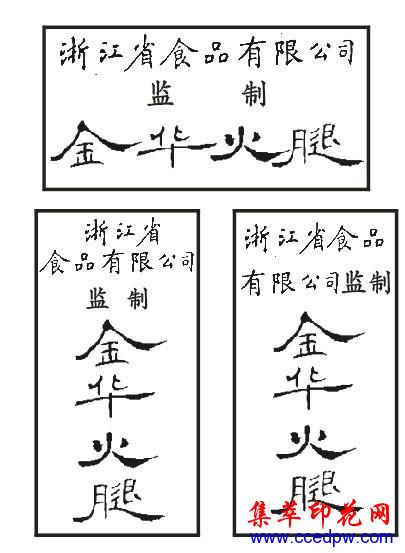 浙江省食品有限公司
监制
金华火腿
浙江省
食品有限公司
监制
金华火腿
浙江省食品
有限公司监制
金华火腿
集萃印花网
www.ccedpw.com